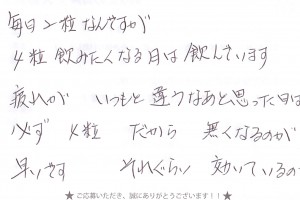 毎日2粒なんですが
4粒 飲みたくなる日は 飲んでいます
疲れが いつもと 違うなあと思った日は
必ず 4粒 だから 無くなるのが
早いです それぐらい 効いているの
★ ご応募いただき、誠にありがとうございます！！ ★